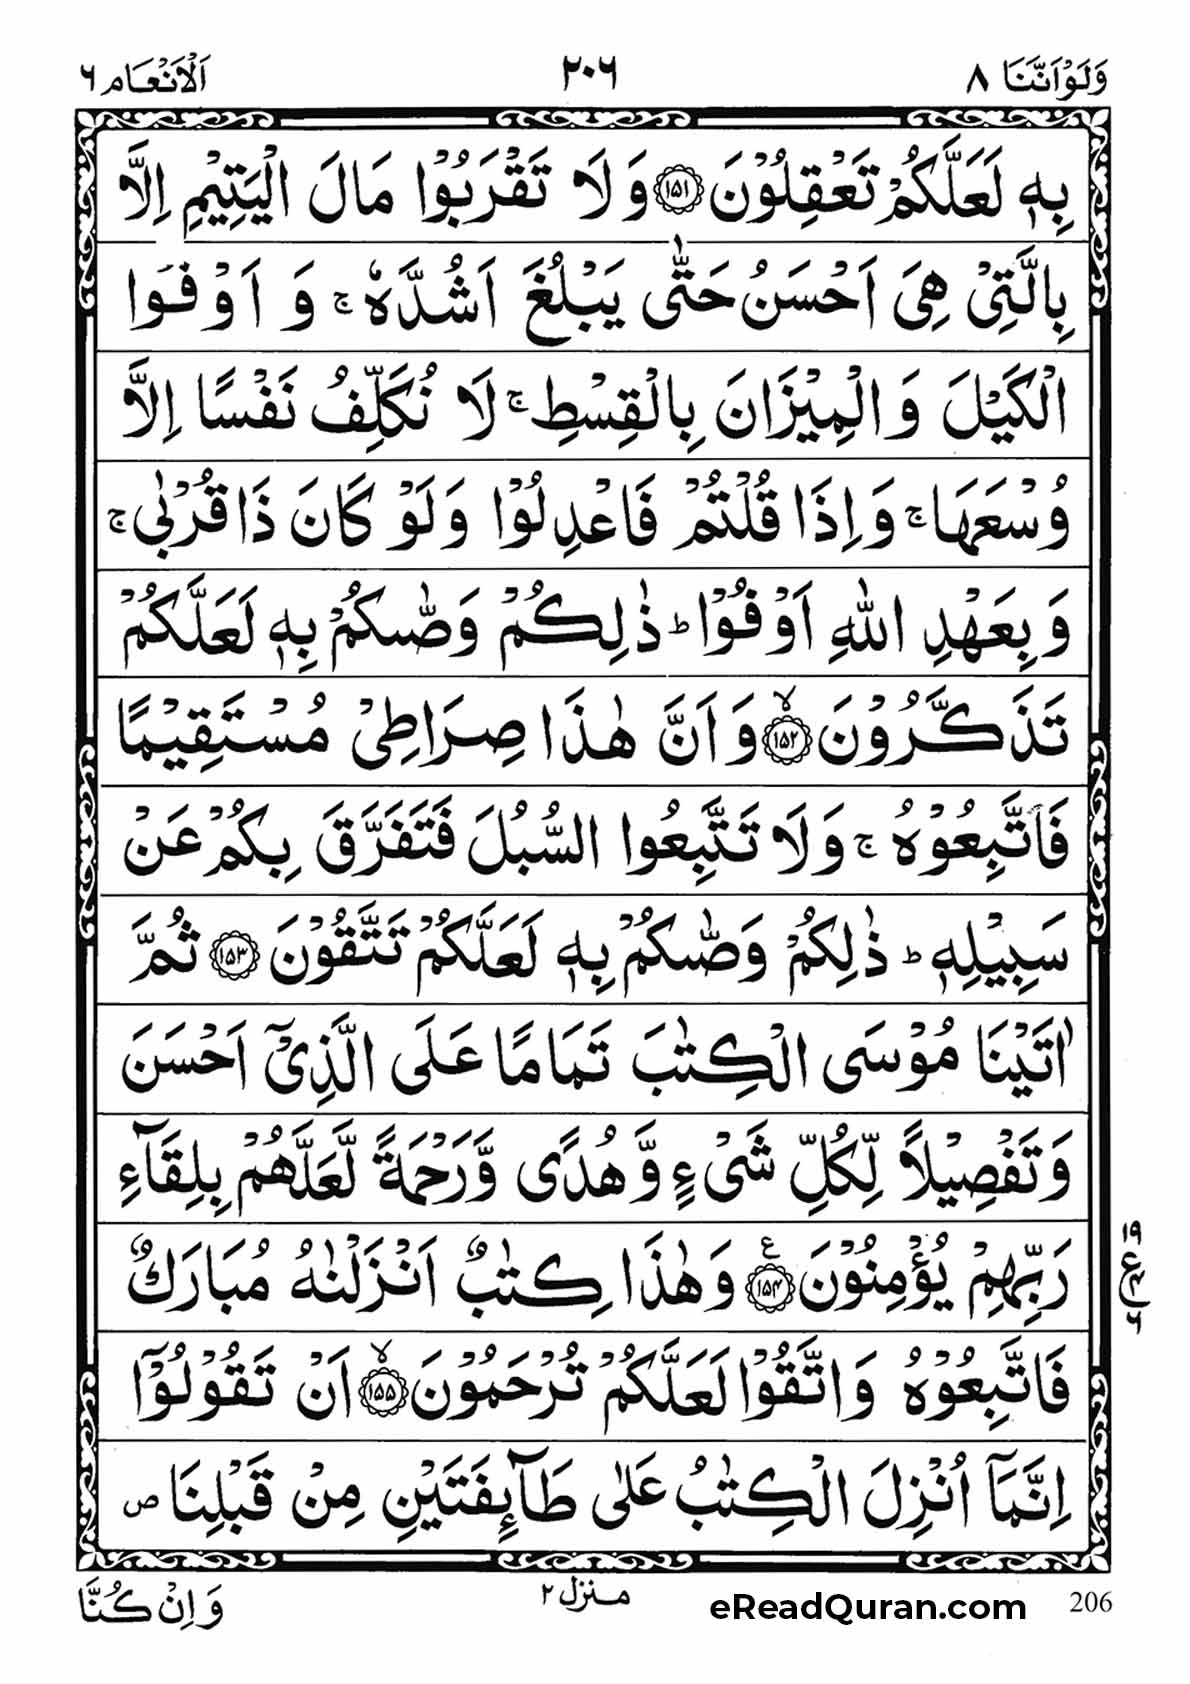 وَلَوْ اَنَّنَا ٨ ٢٠٦ اَلْاَنْعَام ٦
بِهٖ لَعَلَّكُمْ تَعْقِلُوْنَ ﴿١٥١﴾ وَلَا تَقْرَبُوْا مَالَ الْيَتِيْمِ اِلَّا
بِالَّتِيْ هِيَ اَحْسَنُ حَتّٰى يَبْلُغَ اَشُدَّهٗ ج وَ اَوْفُوا
الْكَيْلَ وَالْمِيْزَانَ بِالْقِسْطِ ج لَا نُكَلِّفُ نَفْسًا اِلَّا
وُسْعَهَا ج وَاِذَا قُلْتُمْ فَاعْدِلُوْا وَلَوْ كَانَ ذَا قُرْبٰى ج
وَبِعَهْدِ اللّٰهِ اَوْفُوْا ط ذٰلِكُمْ وَصّٰىكُمْ بِهٖ لَعَلَّكُمْ
تَذَكَّرُوْنَ ﴿١٥٢﴾ لا وَاَنَّ هٰذَا صِرَاطِيْ مُسْتَقِيْمًا
فَاتَّبِعُوْهُ ج وَلَا تَتَّبِعُوا السُّبُلَ فَتَفَرَّقَ بِكُمْ عَنْ
سَبِيْلِهٖ ط ذٰلِكُمْ وَصّٰىكُمْ بِهٖ لَعَلَّكُمْ تَتَّقُوْنَ ﴿١٥٣﴾ ثُمَّ
اٰتَيْنَا مُوْسَى الْكِتٰبَ تَمَامًا عَلَى الَّذِيْٓ اَحْسَنَ
وَتَفْصِيْلًا لِّكُلِّ شَيْءٍ وَّهُدًى وَّرَحْمَةً لَّعَلَّهُمْ بِلِقَآءِ
رَبِّهِمْ يُؤْمِنُوْنَ ﴿١٥٤﴾ ع وَهٰذَا كِتٰبٌ اَنْزَلْنٰهُ مُبَارَكٌ
١٩ ع ٦
فَاتَّبِعُوْهُ وَاتَّقُوْا لَعَلَّكُمْ تُرْحَمُوْنَ ﴿١٥٥﴾ لا اَنْ تَقُوْلُوْٓا
اِنَّمَآ اُنْزِلَ الْكِتٰبُ عَلٰى طَآئِفَتَيْنِ مِنْ قَبْلِنَا ص
206 eReadQuran.com منزل ٢ وَاِنْ كُنَّا